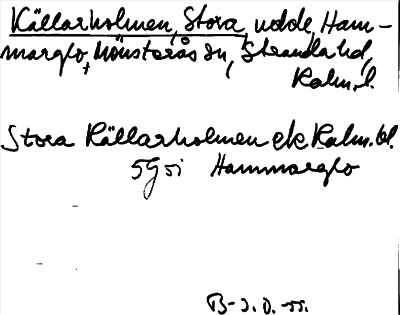 Källarholmen, Stora, udde, Ham-
marglo, Mönsterås sn, Stranda hd,
Kalm. l.
Stora Källarholmen ek Kalm. bl.
5G si Hammarglo